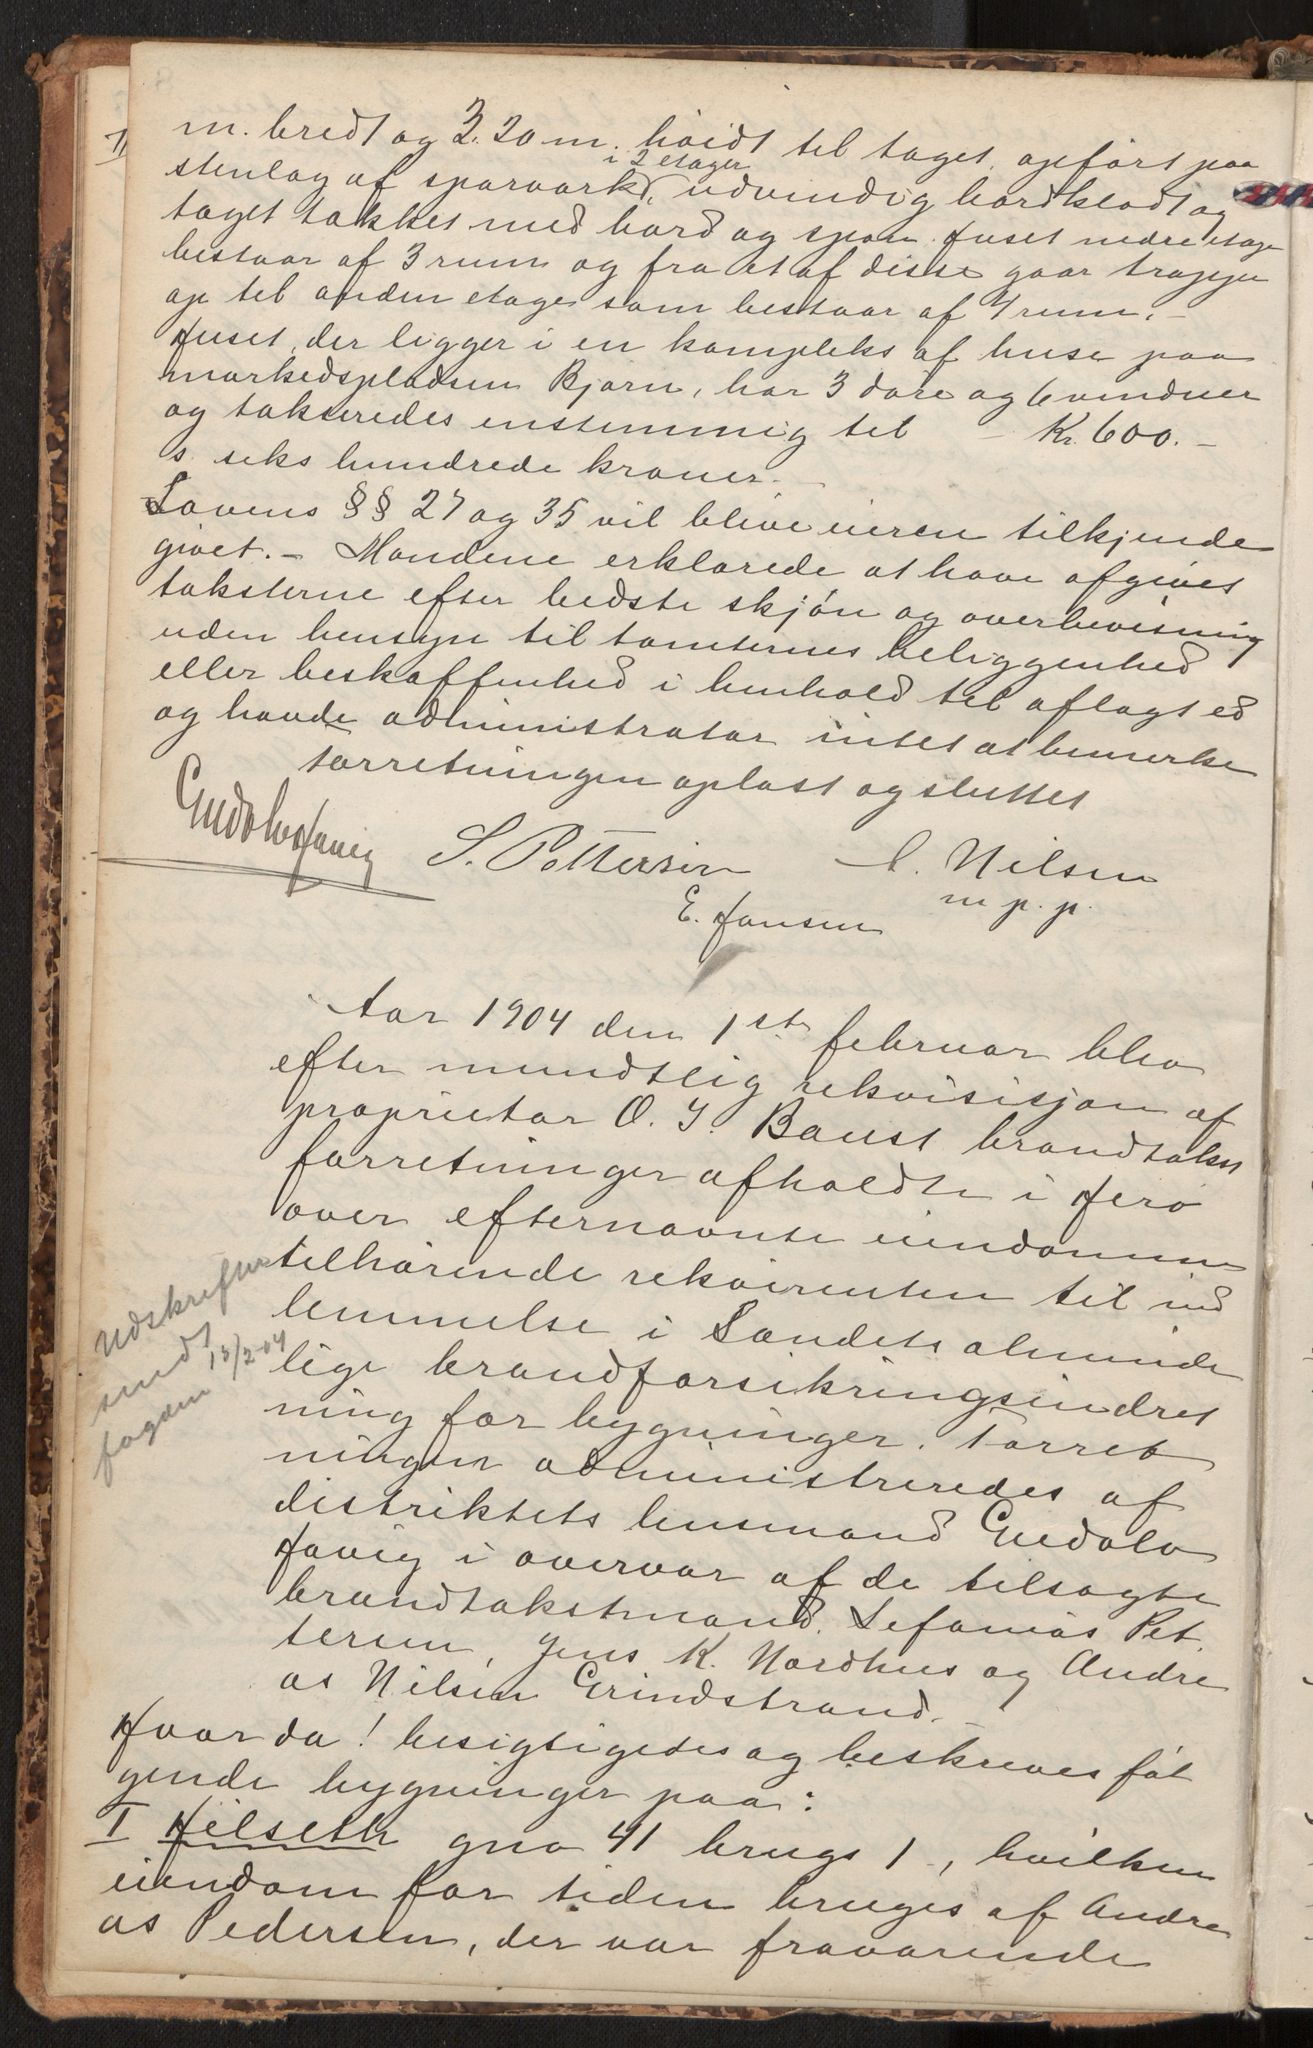 m. bredt og 3.20 m. höidt til taget, opført paa
stenlag af sparværk, i 2 etager udvendig bordklædt og
taget tækket med bord og spon. Huset nedre etage
bestaar af 3 rum og fra et af disse gaar trappe
op til anden etage som bestaar af 4 rum. -
Huset, der ligger i en kompleks af huse paa
markedspladsen Bjørn, har 3 døre og 6 vinduer
og takseredes enstemmig til - Kr. 600. -
s. seks hundrede kroner. -
Lovens §§ 27 og 35 vil blive eieren tilkjende
givet. - Mændene erklærede at have afgivet
taksterne efter bedste skjön og overbevisning
uden hensyn til tomternes beliggenhed
eller beskaffenhed i henhold til aflagt ed
og havde administrator intet at bemerke
Forretningen oplæst og sluttet
Gudolv Havig S. Pettersen A. Nilsen
m. p. p.
E. Hansen
Aar 1904 den 1ste februar blev
efter mundtlig rekvisisjon af
proprietær O. J. Baust brandtakst
forretninger afholdte i Herø
over efternævnte eiendomme
tilhørende rekvirenten til ind
lemmelse i Landets alminde
lige brandforsikringsindret
ning for bygninger. Forret
ningen administreredes af
distriktets lensmand Gudolv
Havig i overvær af de tilsagte
brandtakstmænd. Sefanias Pet
tersen, Jens K. Nordhus og Andre
as Nilsen Grindstrand. -
Udskrifter
sendt
fogden 13/2-04
Hvor da! besigtigedes og beskreves føl
gende bygninger paa:
I Hilseth gno 41 brugs 1, hvilken
eiendom for tiden bruges af Andre
as Pedersen, der var fraværende